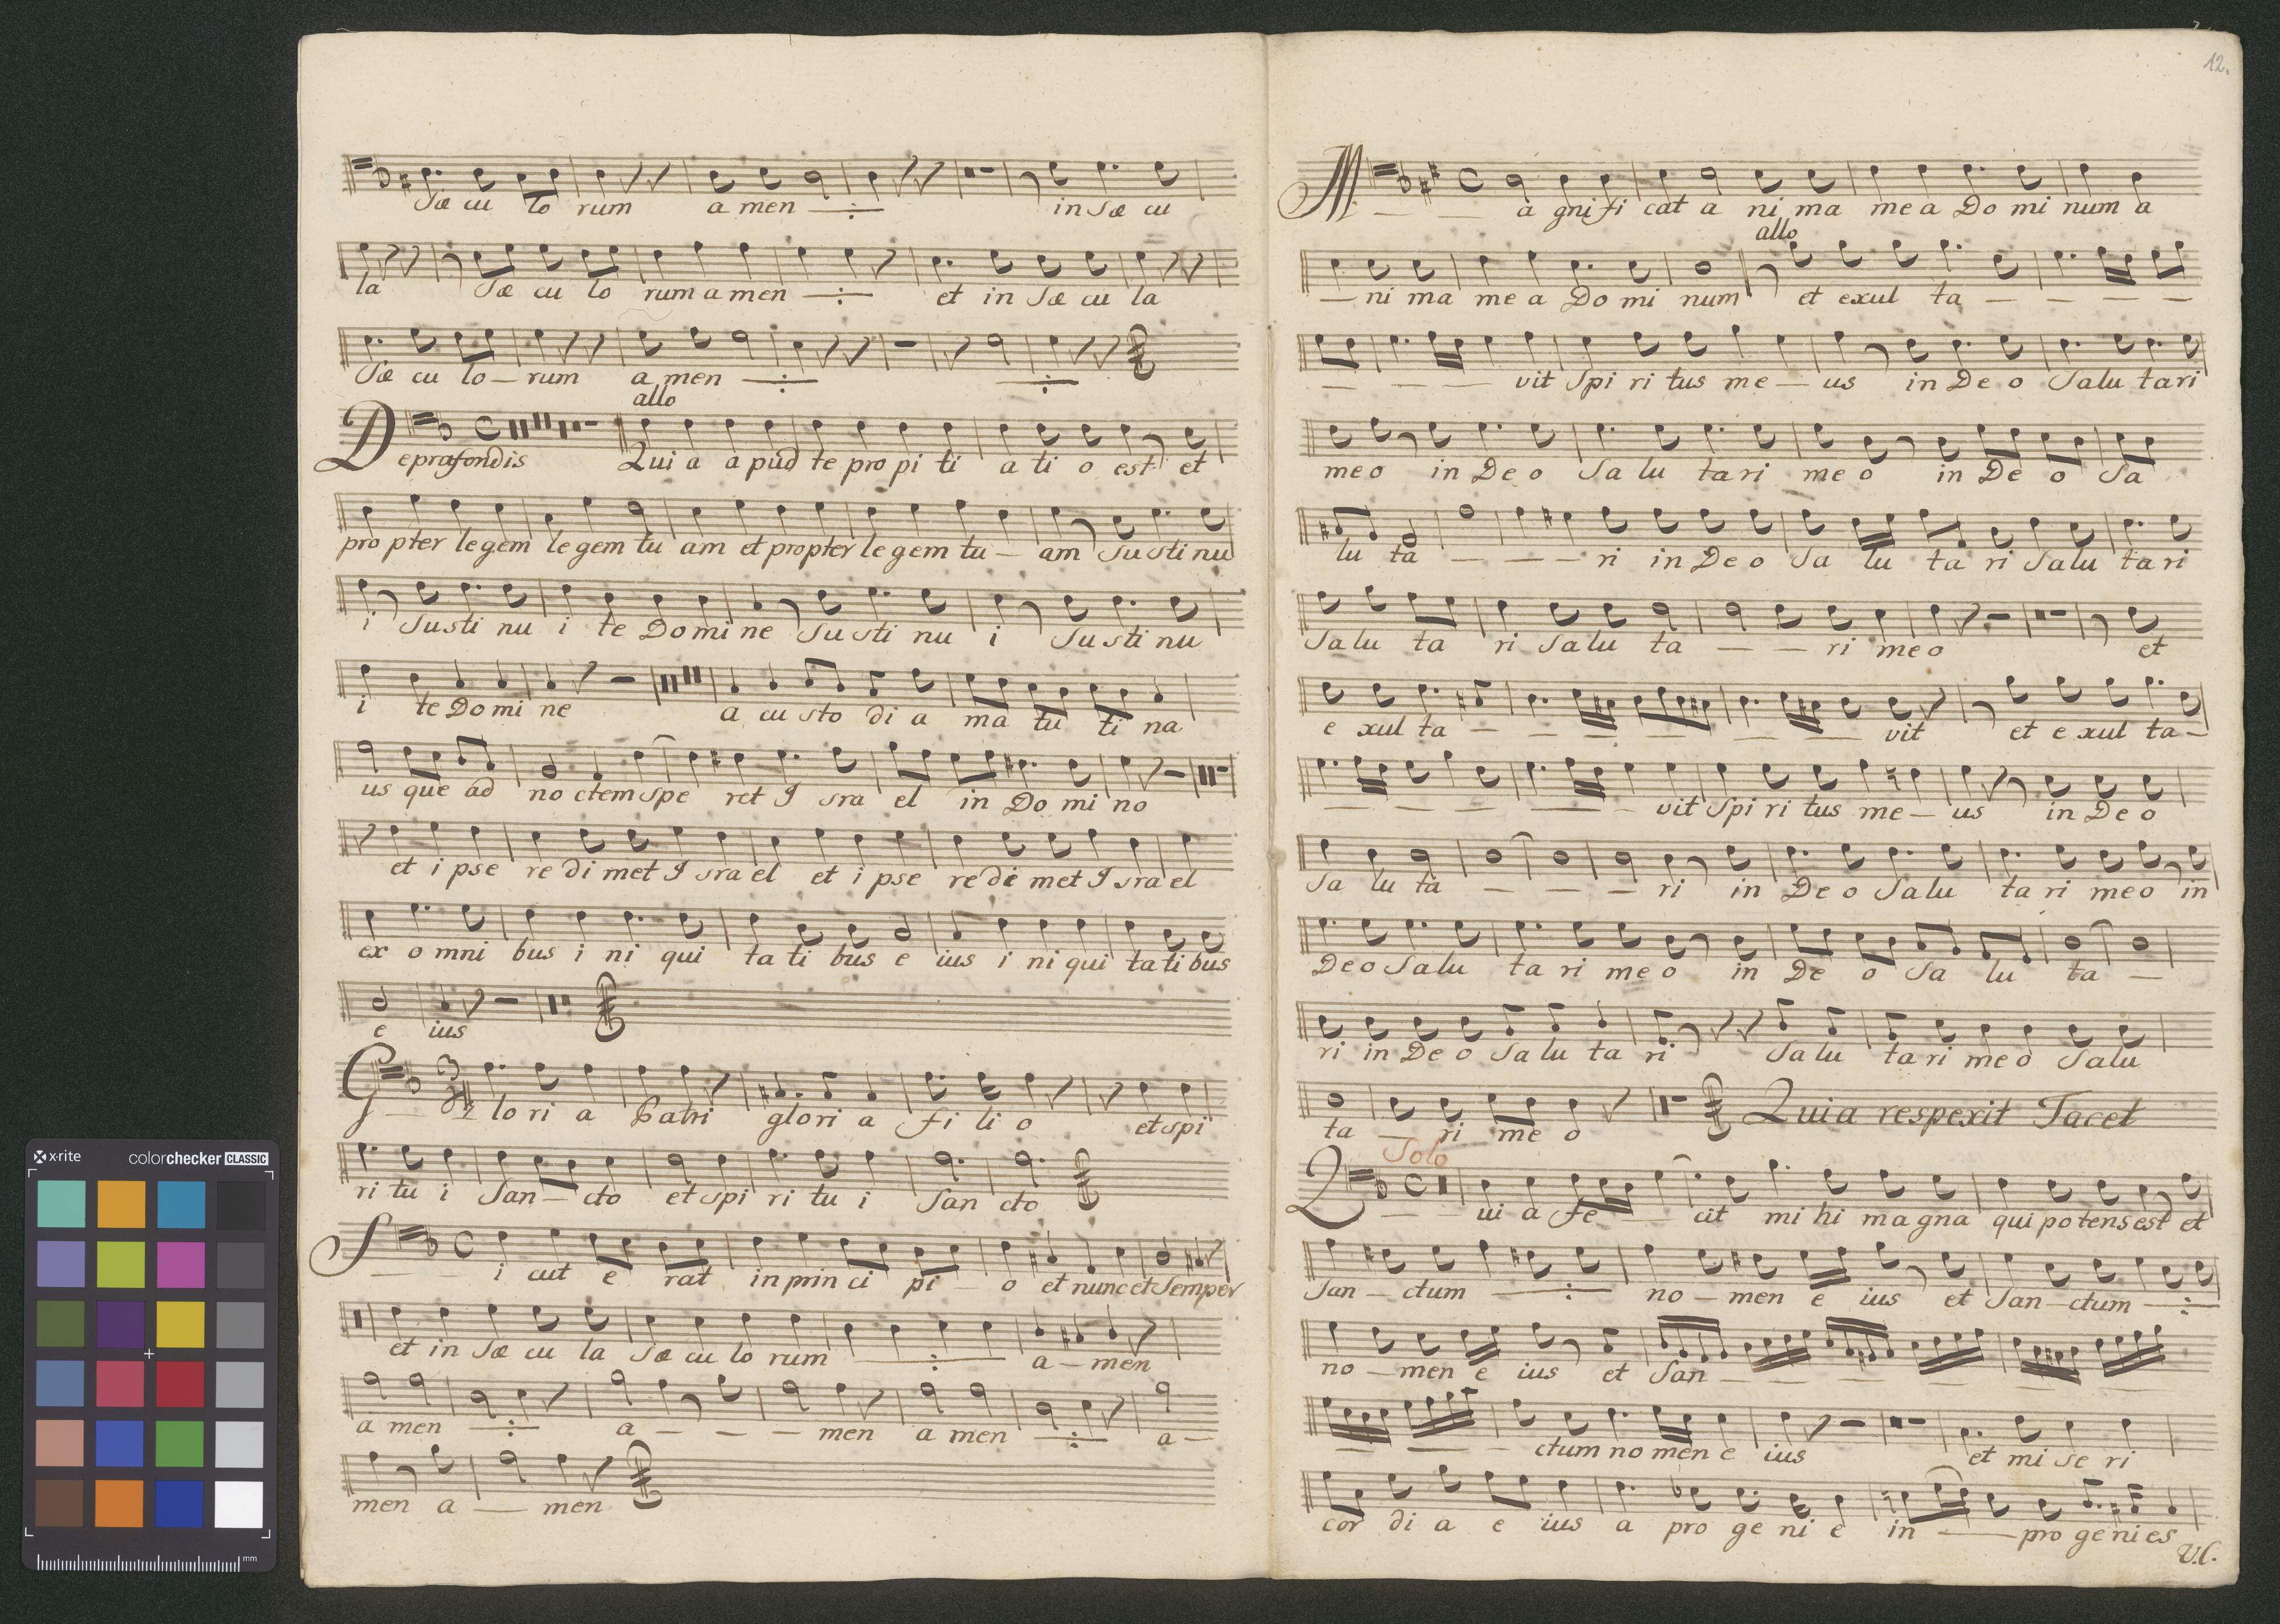 Sæ cu lo rum a men in Sæ cu
la Sæ cu lo rum a men et in Sæ cu la
Sæ cu lo – rum a men
allo
Deprafondis Qui a a pud te pro pi ti a ti o est et
pro pter le gem le gem tu am et propter le gem tu – am Su sti nu
i Su sti nu i te Do mi ne Su sti nu i Su sti nu
i te Do mi ne a cu sto di a ma tu ti na
us que ad no ctem spe ret I sra el in Do mi no
et i pse re di met I sra el et i pse re di met I sra el
ex o mni bus i ni qui ta ti bus e ius i ni qui ta ti bus
e ius
G lo ri a Patri glo ri a fi li o et spi
ri tu i San – cto et spi ri tu i San cto
S i cut e rat in prin ci pi – o et nunc et Semper
et in Sæ cu la Sæ cu lo rum a – men
a men a – – – men a men a –
men a – men
12.
M – – a gni fi cat a ni ma me a Do mi num a
allo
– ni ma me a Do mi num et exul ta – – – –
– – – vit Spi ri tus me – us in De o Salu tari
meo in De o Sa lu ta ri me o in De o Sa
lu ta – – – ri in De o Sa lu ta ri Salu ta ri
Salu ta ri Salu ta – – ri me o et
e xul ta – – – – – – – vit et e xul ta –
– – – – – – vit Spi ri tus me – us in De o
Sa lu ta – – – ri in De o Salu ta ri me o in
De o Salu ta ri me o in De o Sa lu ta –
ri in De o Sa lu ta ri Sa lu ta ri me o Salu
ta – ri me o Quia respexit Tacet
Solo
Q – – ui a fe – – cit mi hi ma gna qui po tens est et
San – ctum no – men e ius et San – ctum
no – men e ius et San – – – – – –
– – – ctum no men e ius et mi se ri
cor di a e ius a pro ge ni e in – – pro ge ni es
V.S.
x-rite colorchecker CLASSIC
mm